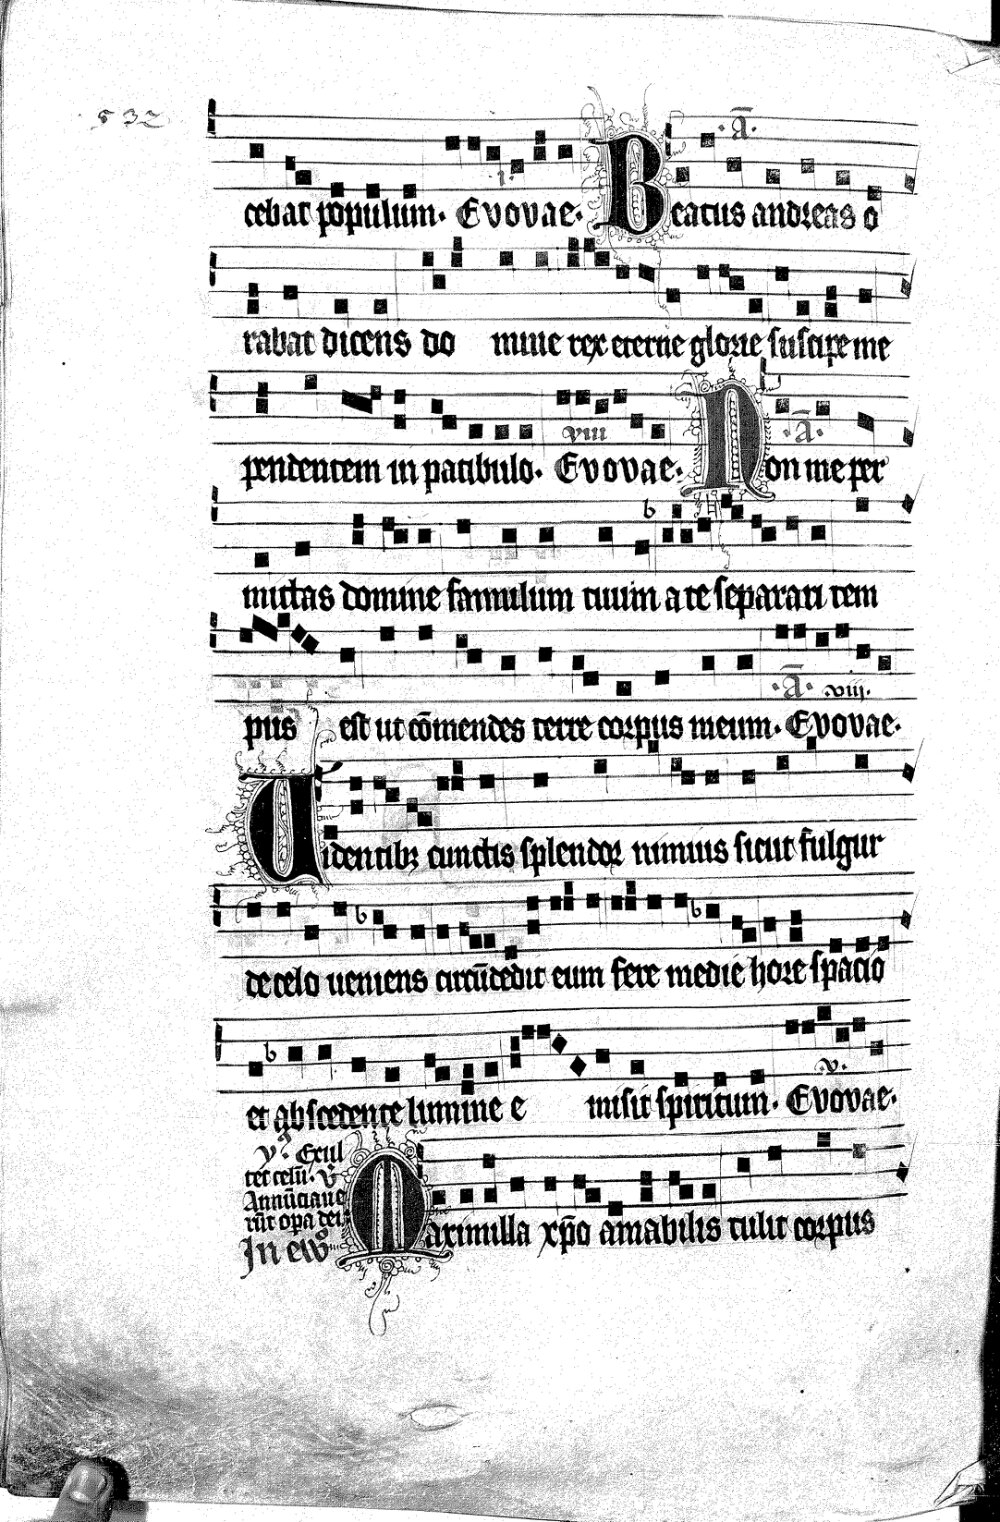 532
·ā·
cebat populum. Evovae. Beatus andreas o
i.
rabat dicens do mine rex eterne glorie suscipe me
pendentem in patibulo. Evovae. Non me per
viii ·ā·
mittas domine famulum tuum a te separari tem
pus est ut cōmendes terre corpus meum. Evovae.
·ā· viii.
Uidentibꝫ cunctis splendor nimius sicut fulgur
de celo veniens circūdedit eum fere medie hore spacio
et abscedente lumine e misit spiritum. Evovae.
v.
℣. Exul
tet celū. ℣
Annūciave
rūt opa dei.
In ev̄o Maximilla xp̄o amabilis tulit corpus